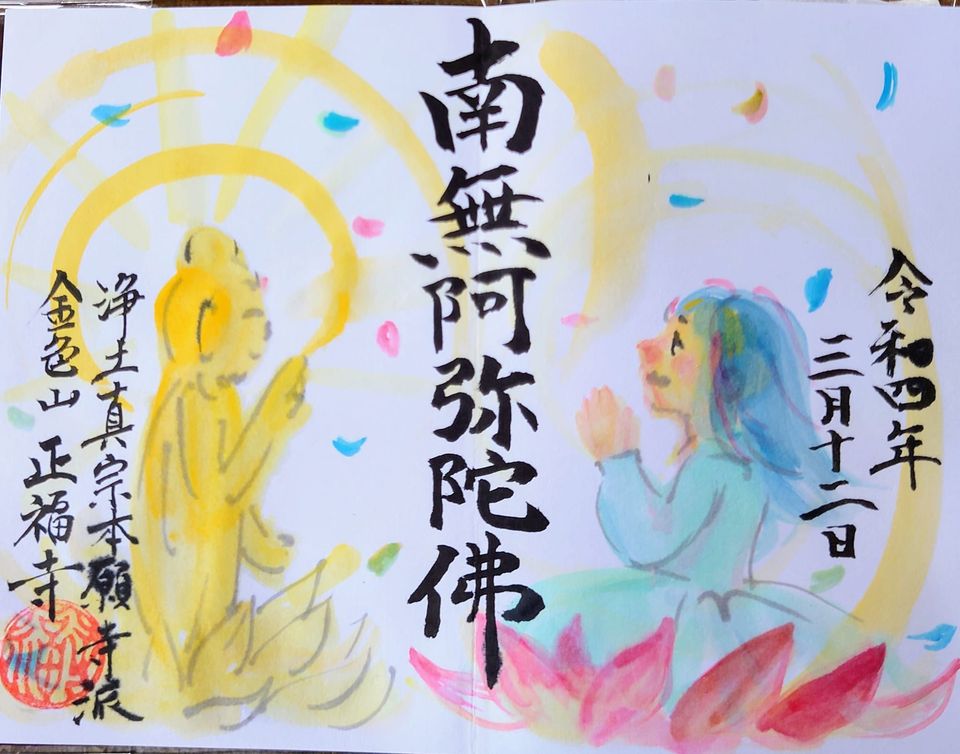 令和四年
三月十二日
南無阿弥陀佛
浄土真宗本願寺派
金色山正福寺